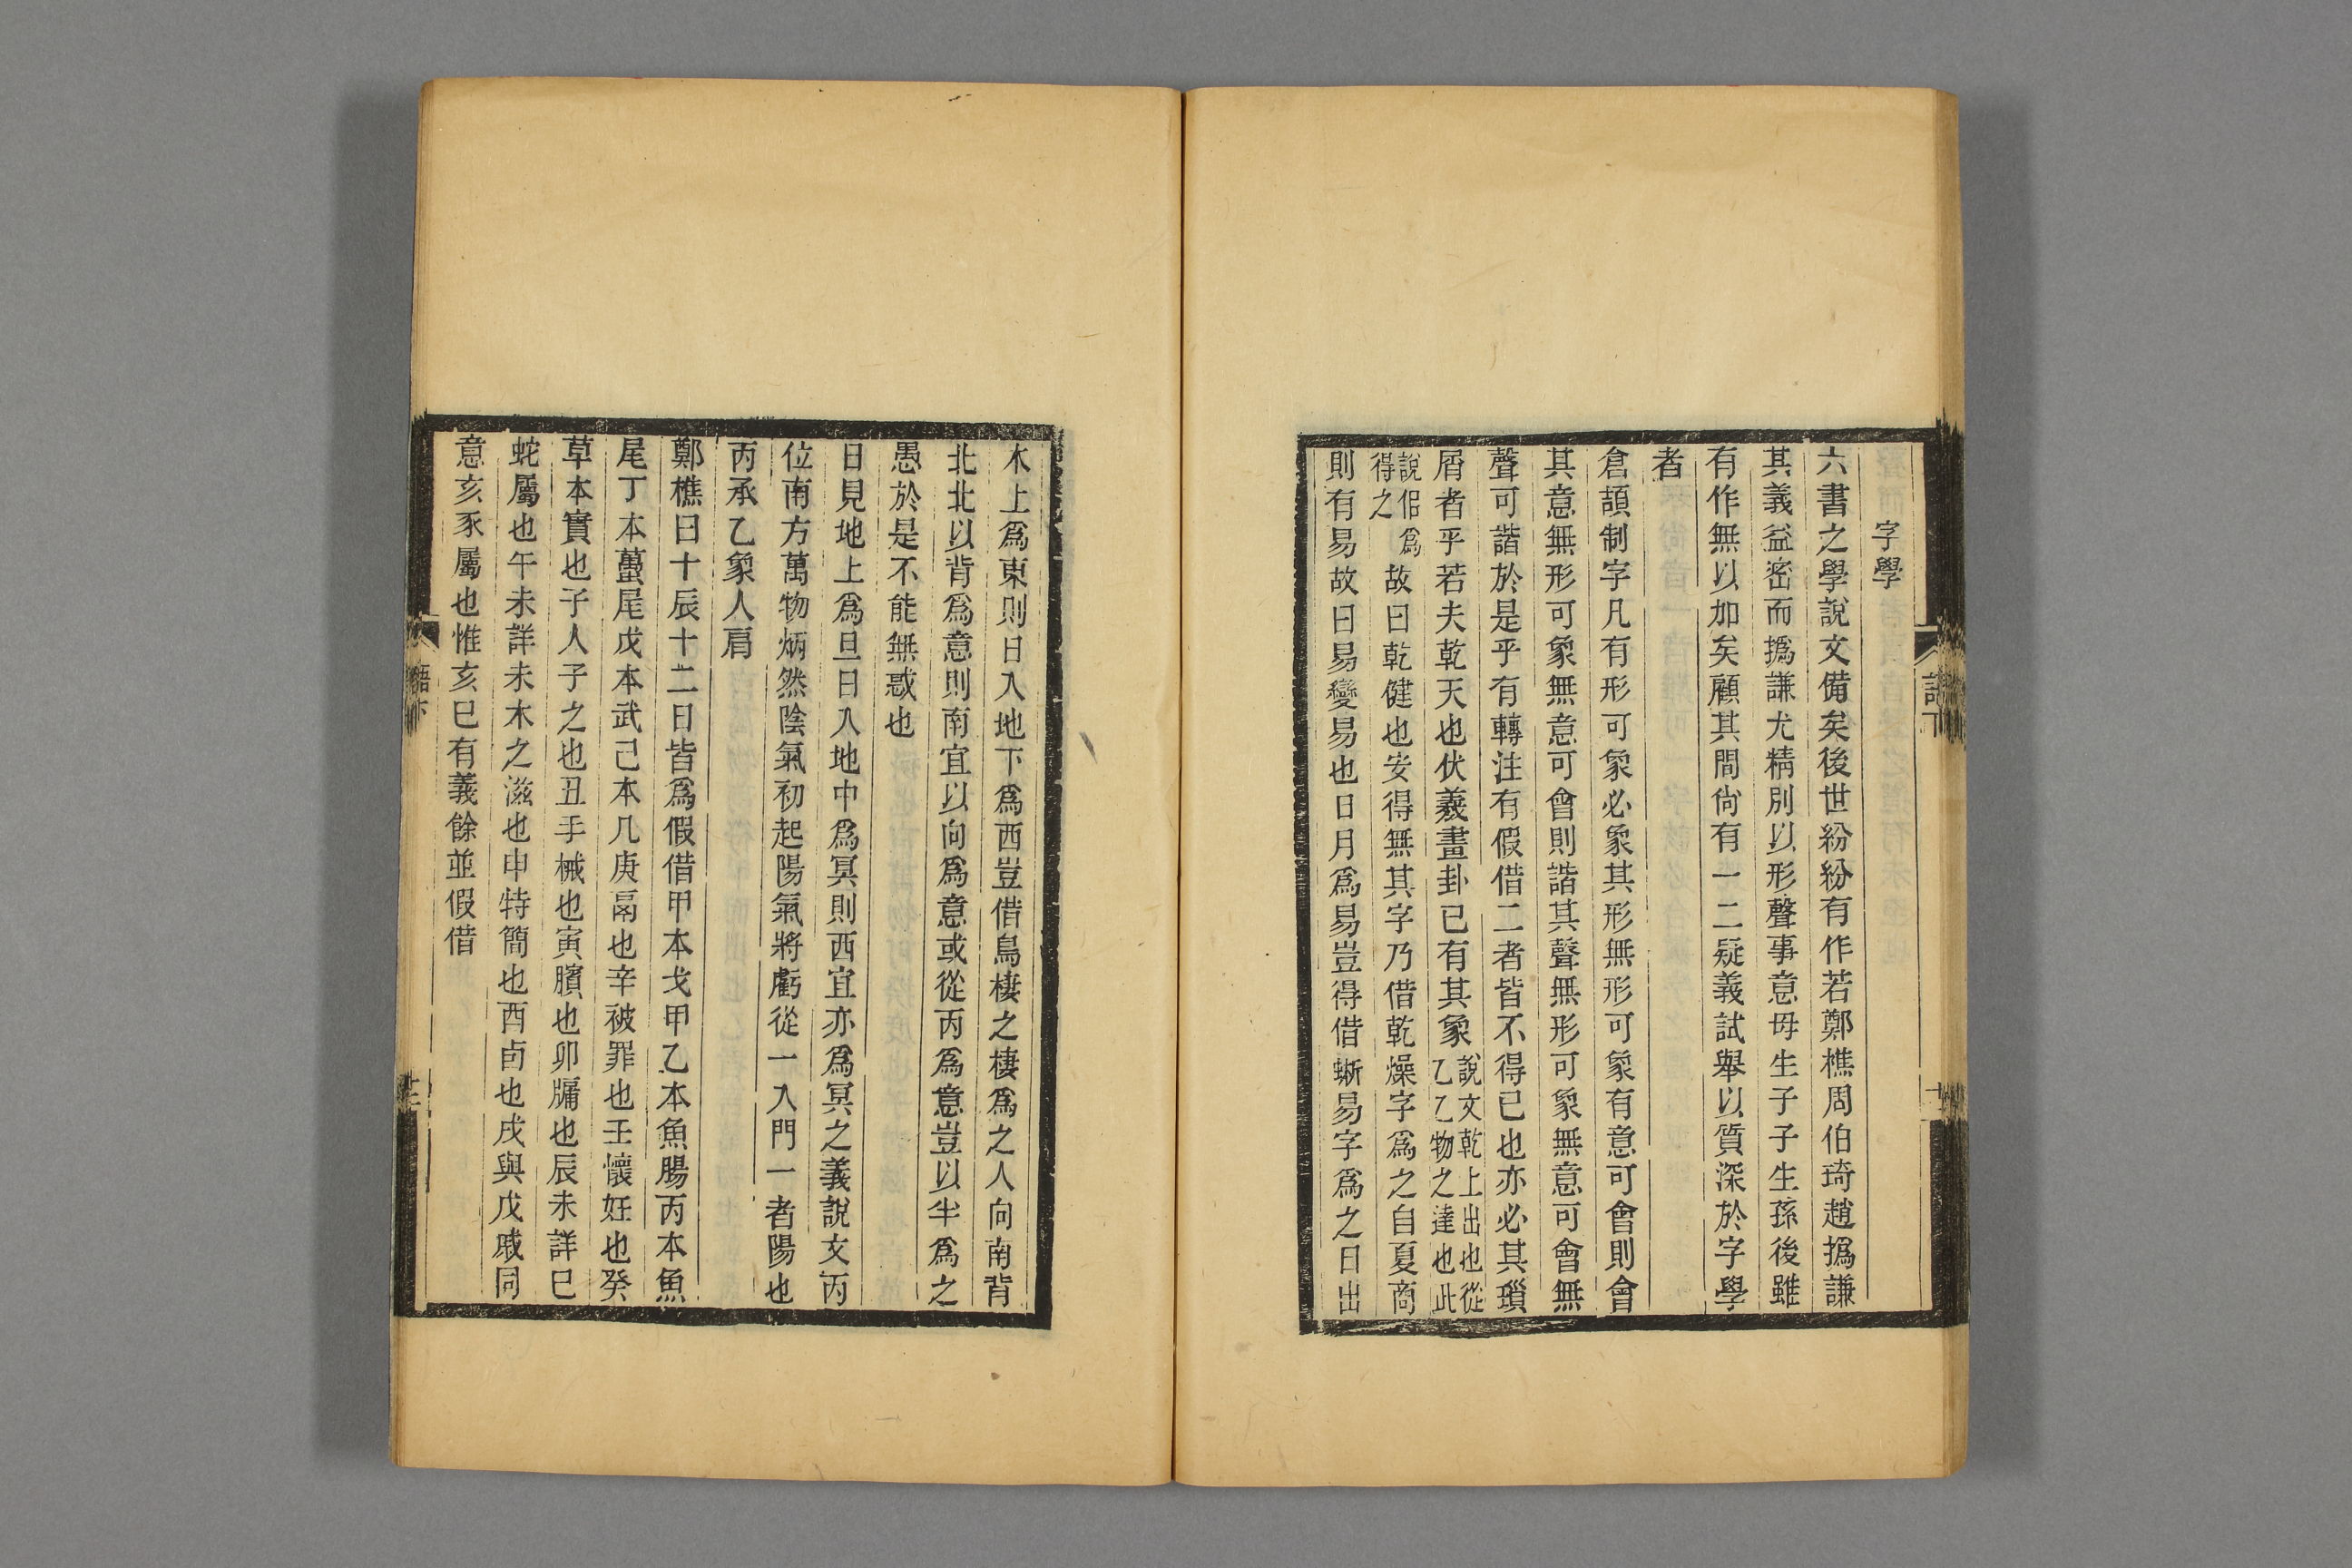 字學
六書之學說文備矣後世紛紛有作若鄭樵周伯琦趙撝謙
其義益密而撝謙尤精別以形聲事意母生子子生孫後雖
有作無以加矣顧其間尙有一二疑義試舉以質深於字學
者
倉頡制字凡有形可象必象其形無形可象有意可會則會
其意無形可象無意可會則諧其聲無形可象無意可會無
聲可諧於是乎有轉注有假借二者皆不得已也亦必其瑣
屑者乎若夫乾天也伏羲畫卦已有其象說文乾上出也從
乙乙物之達也此
說佀爲
得之
故曰乾健也安得無其字乃借乾燥字爲之自夏商
則有易故曰易變易也日月爲易豈得借蜥易字爲之日出
木上爲東則日入地下爲西豈借鳥棲之棲爲之人向南背
北北以背爲意則南宜以向爲意或從丙爲意豈以𢆉爲之
愚於是不能無惑也
日見地上爲旦日入地中爲冥則西宜亦爲冥之義說文丙
位南方萬物炳然陰氣初起陽氣將虧從一入門一者陽也
丙承乙象人肩
鄭樵曰十辰十二日皆爲假借甲本戈甲乙本魚腸丙本魚
尾丁本蠆尾戊本武己本几庚鬲也辛被罪也壬懷妊也癸
草本實也子人子之也丑手械也寅臏也卯牖也辰未詳巳
蛇屬也午未詳未木之滋也申特簡也酉卣也戌與戊戚同
意亥豕屬也惟亥巳有義餘並假借
語下
語下